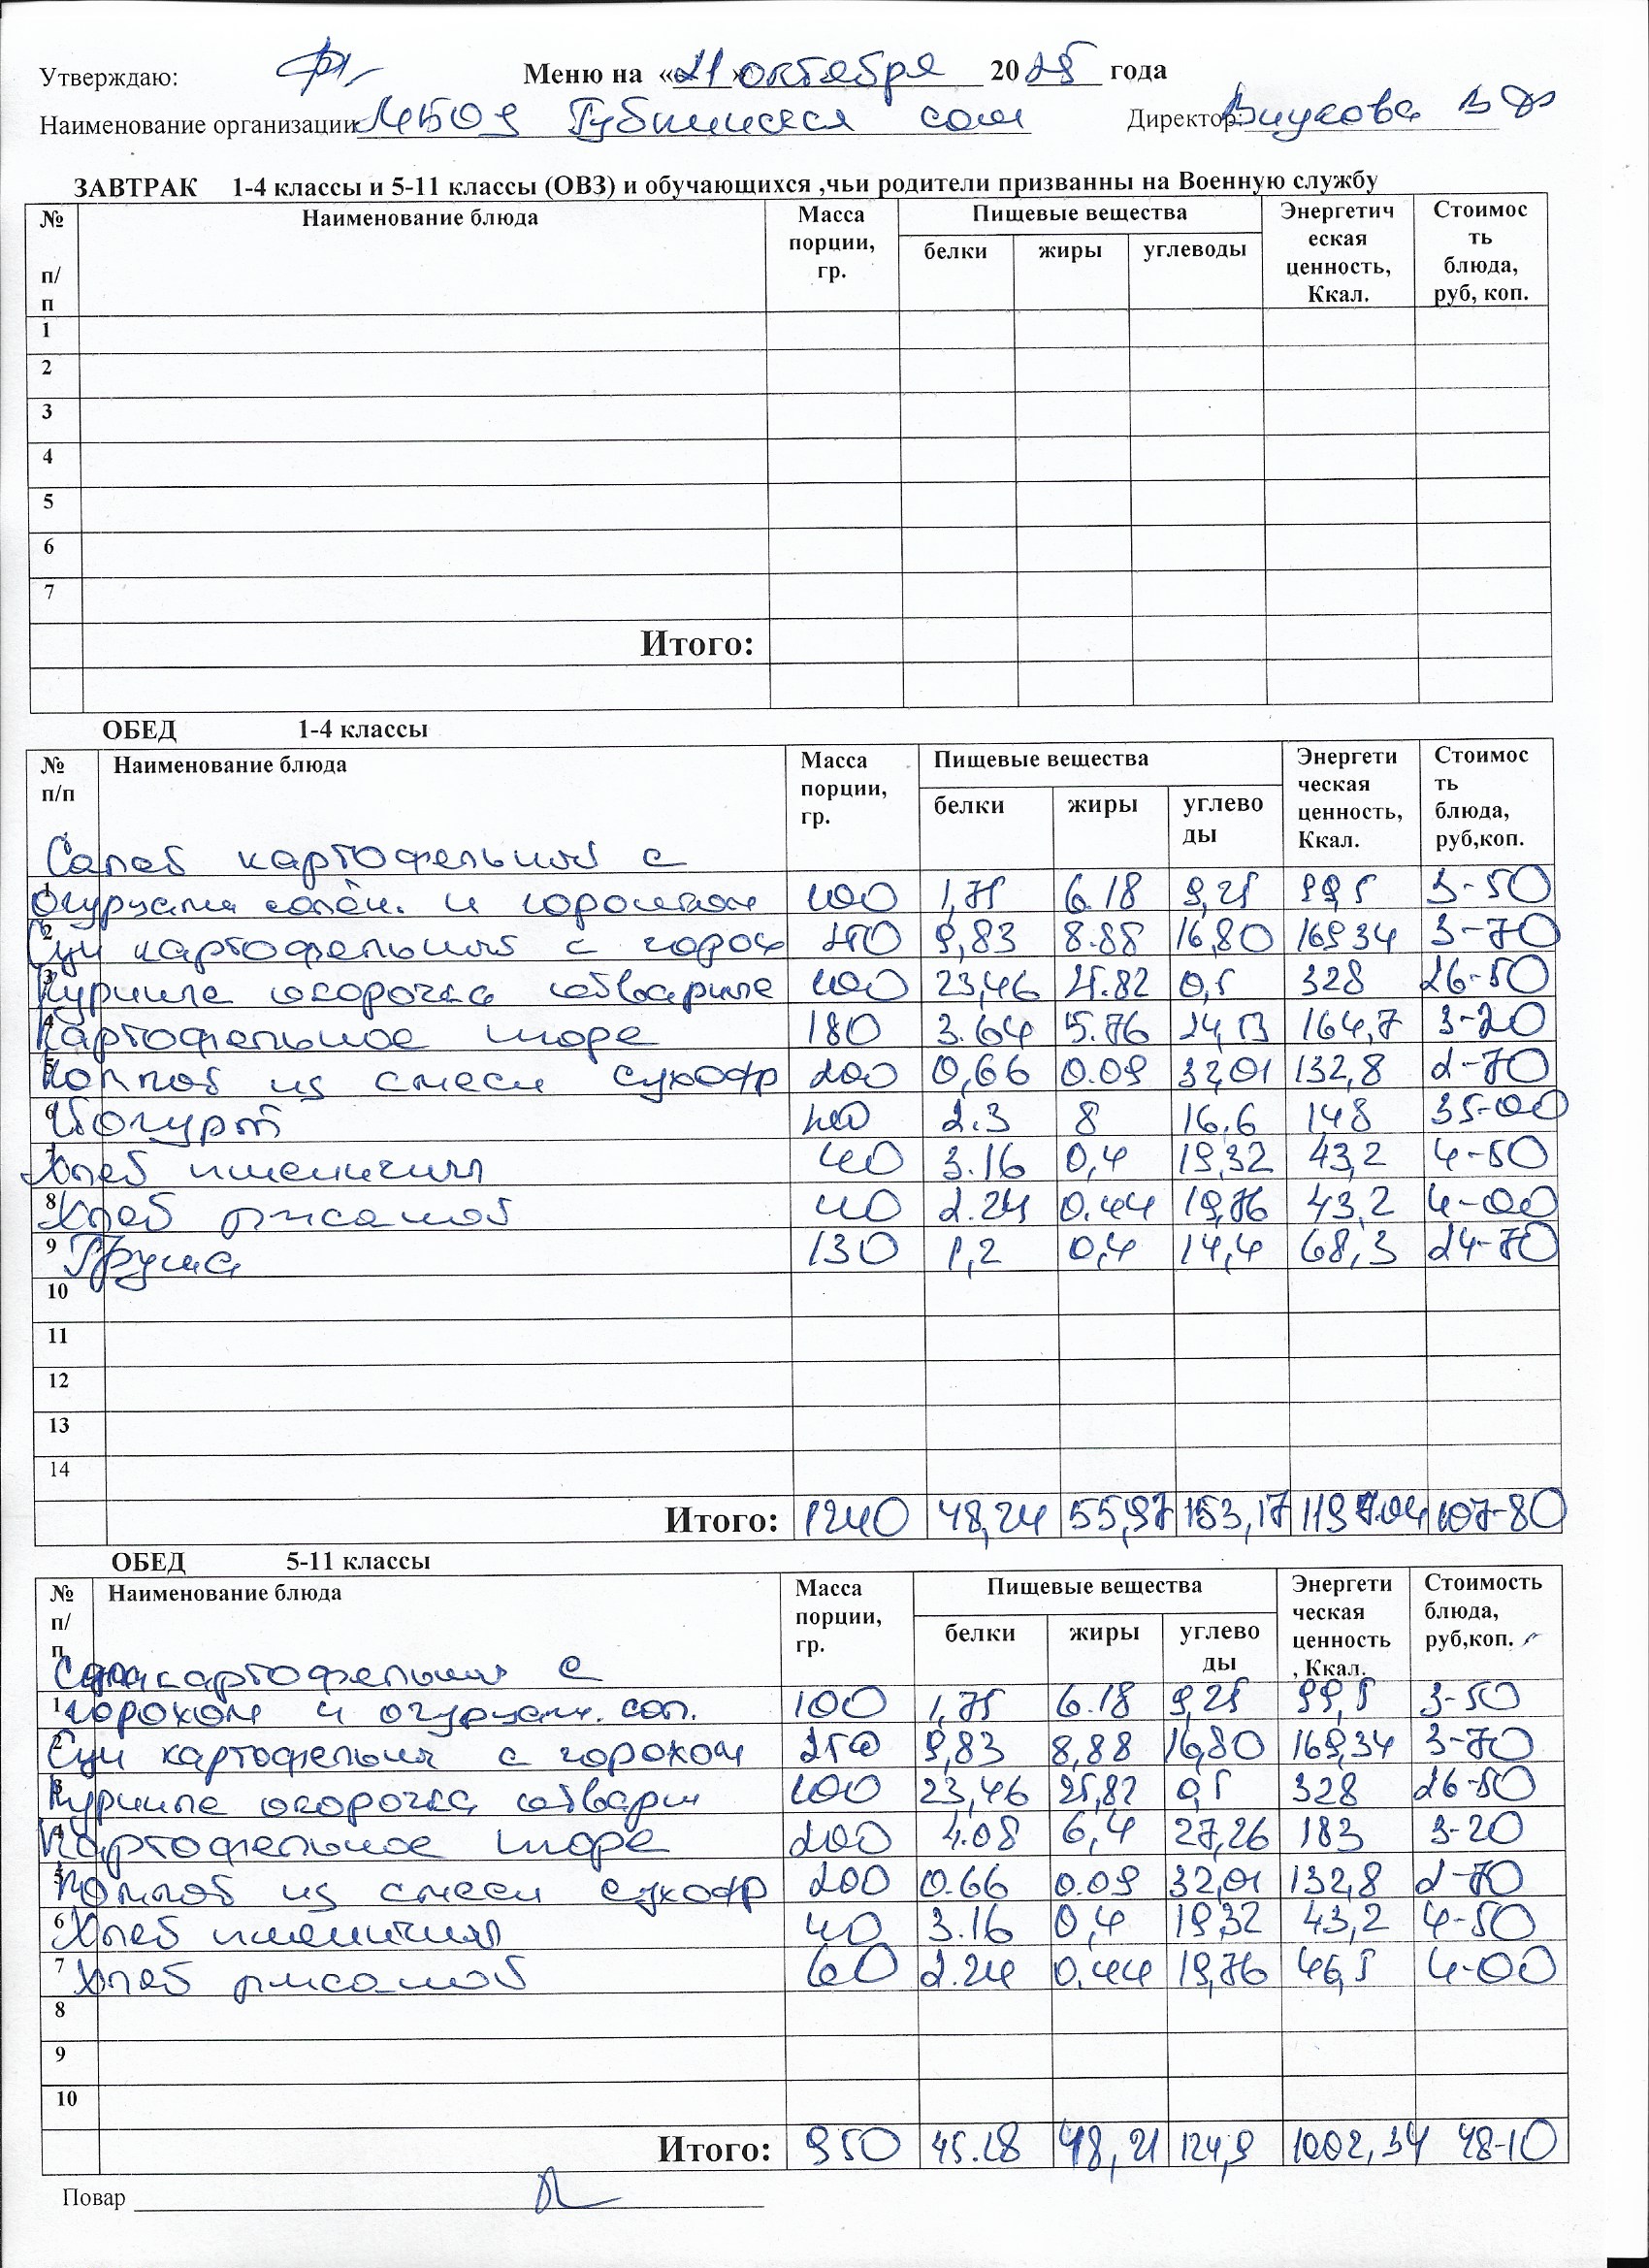 Утверждаю: Меню на «21» октября 2025 года
Наименование организации МБОУ Губкинская сош Директор: Внукова В
ЗАВТРАК 1-4 классы и 5-11 классы (ОВЗ) и обучающихся ,чьи родители призванны на Военную службу
№ п/п Наименование блюда Масса порции, гр. Пищевые вещества Энергетическая ценность, Ккал. Стоимость блюда, руб, коп.
белки жиры углеводы
1
2
3
4
5
6
7
Итого:
ОБЕД 1-4 классы
№ п/п Наименование блюда Масса порции, гр. Пищевые вещества Энергетическая ценность, Ккал. Стоимость блюда, руб,коп.
белки жиры углеводы
Салат картофельный с
1 огурцами солён. и горошком 100 1,75 6.18 9,25 99,5 3-50
2 Суп картофельный с горох 250 9,83 8.88 16,80 169 34 3-70
3 Куриные окорочка отварные 100 23,46 25.82 0,5 328 26-50
4 Картофельное пюре 180 3.64 5.76 24,53 164,7 3-20
5 Компот из смеси сухофр 200 0,66 0.09 32,01 132,8 2-70
6 Йогурт 200 2.3 8 16.6 148 35-00
7 Хлеб пшеничный 40 3.16 0,4 19,32 43,2 4-50
8 Хлеб ржаной 40 2.24 0.44 19,76 43,2 4-00
9 Груша 130 1,2 0,4 14,4 68,3 24-70
10
11
12
13
14
Итого: 1240 48,24 55,97 153,17 1197.04 107-80
ОБЕД 5-11 классы
№ п/п Наименование блюда Масса порции, гр. Пищевые вещества Энергетическая ценность, Ккал. Стоимость блюда, руб,коп.
белки жиры углеводы
Салат картофельный с
1 горохом и огурцами. сол. 100 1,75 6.18 9,25 99,5 3-50
2 Суп картофельный с горохом 250 9,83 8,88 16,80 169,34 3-70
3 Куриные окорочка отварн 100 23,46 25,82 0,5 328 26-50
4 Картофельное пюре 200 4.08 6,4 27,26 183 3-20
5 Компот из смеси сухофр 200 0.66 0.09 32,01 132,8 2-70
6 Хлеб пшеничный 40 3.16 0,4 19,32 43,2 4-50
7 Хлеб ржаной 60 2.24 0.44 19,76 46,5 4-00
8
9
10
Итого: 950 45.18 48,21 124,9 1002,34 48-10
Повар